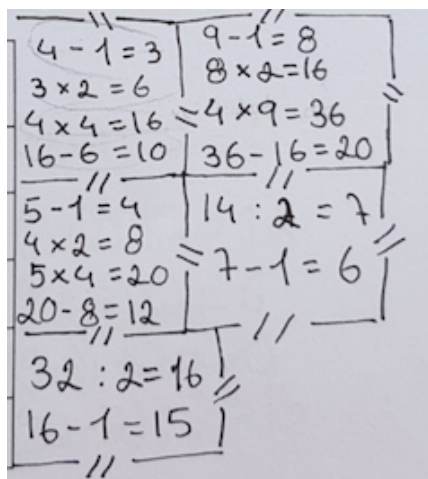 4 - 1 = 3
3 × 2 = 6
4 × 4 = 16
16 - 6 = 10
9 - 1 = 8
8 × 2 = 16
4 × 9 = 36
36 - 16 = 20
5 - 1 = 4
4 × 2 = 8
5 × 4 = 20
20 - 8 = 12
14 : 2 = 7
7 - 1 = 6
32 : 2 = 16
16 - 1 = 15